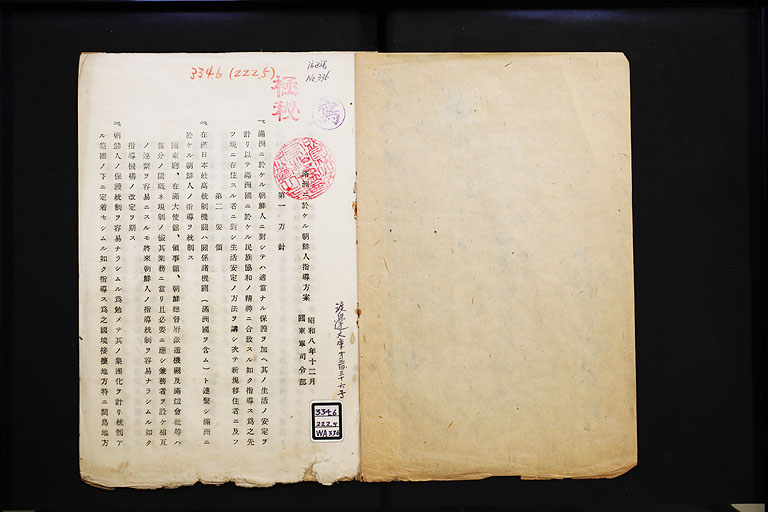 334.6 (222.5)
No.336
極秘
寫
滿洲ニ於ケル朝鮮人指導方案
昭和八年十二月
關東軍司令部
第一 方針
一、滿洲ニ於ケル朝鮮人ニ對シテハ適當ナル保護ヲ加ヘ其ノ生活ノ安定ヲ
計リ以テ滿洲國ニ於ケル民族協和ノ精神ニ合致スル如ク指導ス爲之先
ツ現ニ在住スル者ニ對シ生活安定ノ方法ヲ講シ次テ新規移住者ニ及フ
第二 要領
一、在滿日本最高統制機關ハ關係諸機關(滿洲國ヲ含ム)ト連繫シ滿洲ニ
於ケル朝鮮人ノ指導ヲ統制ス
關東廳、在滿大使館、領事館、朝鮮總督府派遣機關及滿鐵會社等ハ
當分ノ間概ネ現制ノ儘其業務ニ當リ且必要ニ應シ兼務者ヲ設ケ相互
ノ連繫ヲ容易ニスルモ將來朝鮮人ノ指導統制ヲ容易ナラシムル如ク
指導機構ノ改定ヲ期ス
一、朝鮮人ノ保護統制ヲ容易ナラシムル爲勉メテ其ノ集團化ヲ計リ統制ア
ル集團ノ下ニ定着セシムル如ク指導ス爲之國境接壤地方特ニ間島地方
渡邊文庫才百三十六号
334.6
222.5
WA336